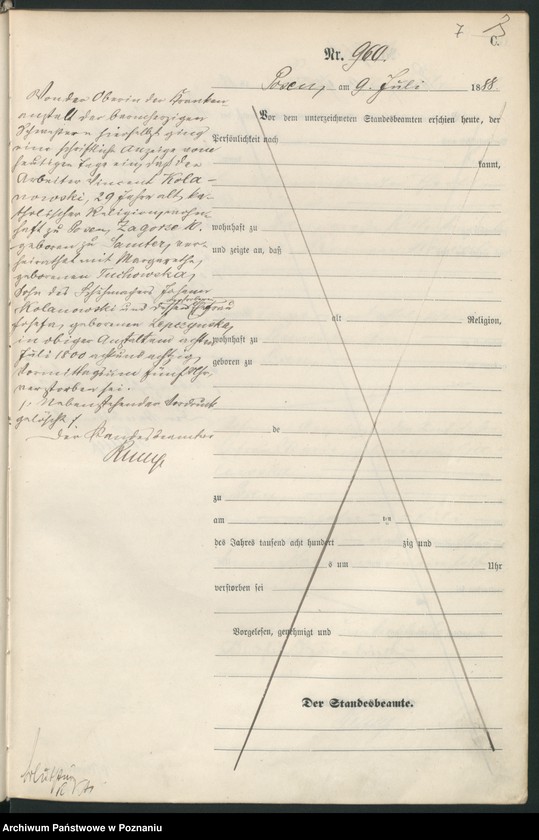 7
C.
Nr. 960.
Posen, am 9. Juli 1888.
Von der Oberin der Kranken
anstalt der barmherzigen
Schwestern hierselbst ging
eine schriftliche Anzeige vom
heutigen Tage ein, daß der
Arbeiter Vincent Kola-
nowski, 29 Jahre alt, ka-
tholischer Religion, wohn
haft zu Posen, Zagorze
geboren zu Samter, ver-
heirathet mit Margarethe,
geborenen Tuchowska,
Sohn des Schuhmachers Johann
Kolanowski und dessen Ehefrau
Josefa, geborenen
in obiger Anstalt am achten
Juli 1800 acht und achtzig,
Vormittags um fünf Uhr,
verstorben sei.
Nebenstehender Vordruck
gelöscht.
Der Standesbeamte
Vor dem unterzeichneten Standesbeamten erschien heute, der
Persönlichkeit nach
kannt,
wohnhaft zu
und zeigte an, daß
alt Religion,
wohnhaft zu
geboren zu
de
zu
am
des Jahres tausend acht hundert zig und
s um Uhr
verstorben sei
Vorgelesen, genehmigt und
Der Standesbeamte.
Archiwum Państwowe w Poznaniu